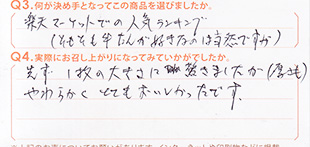 Q3.何が決め手となってこの商品を選びましたか。
楽天マーケットでの人気ランキング
(そもそも牛たんが好きなのは当然ですが)
Q4.実際にお召し上がりになってみていかがでしたか。
先ず1枚の大きさに驚きましたが(厚さも)
やわらかくとてもおいしかったです。